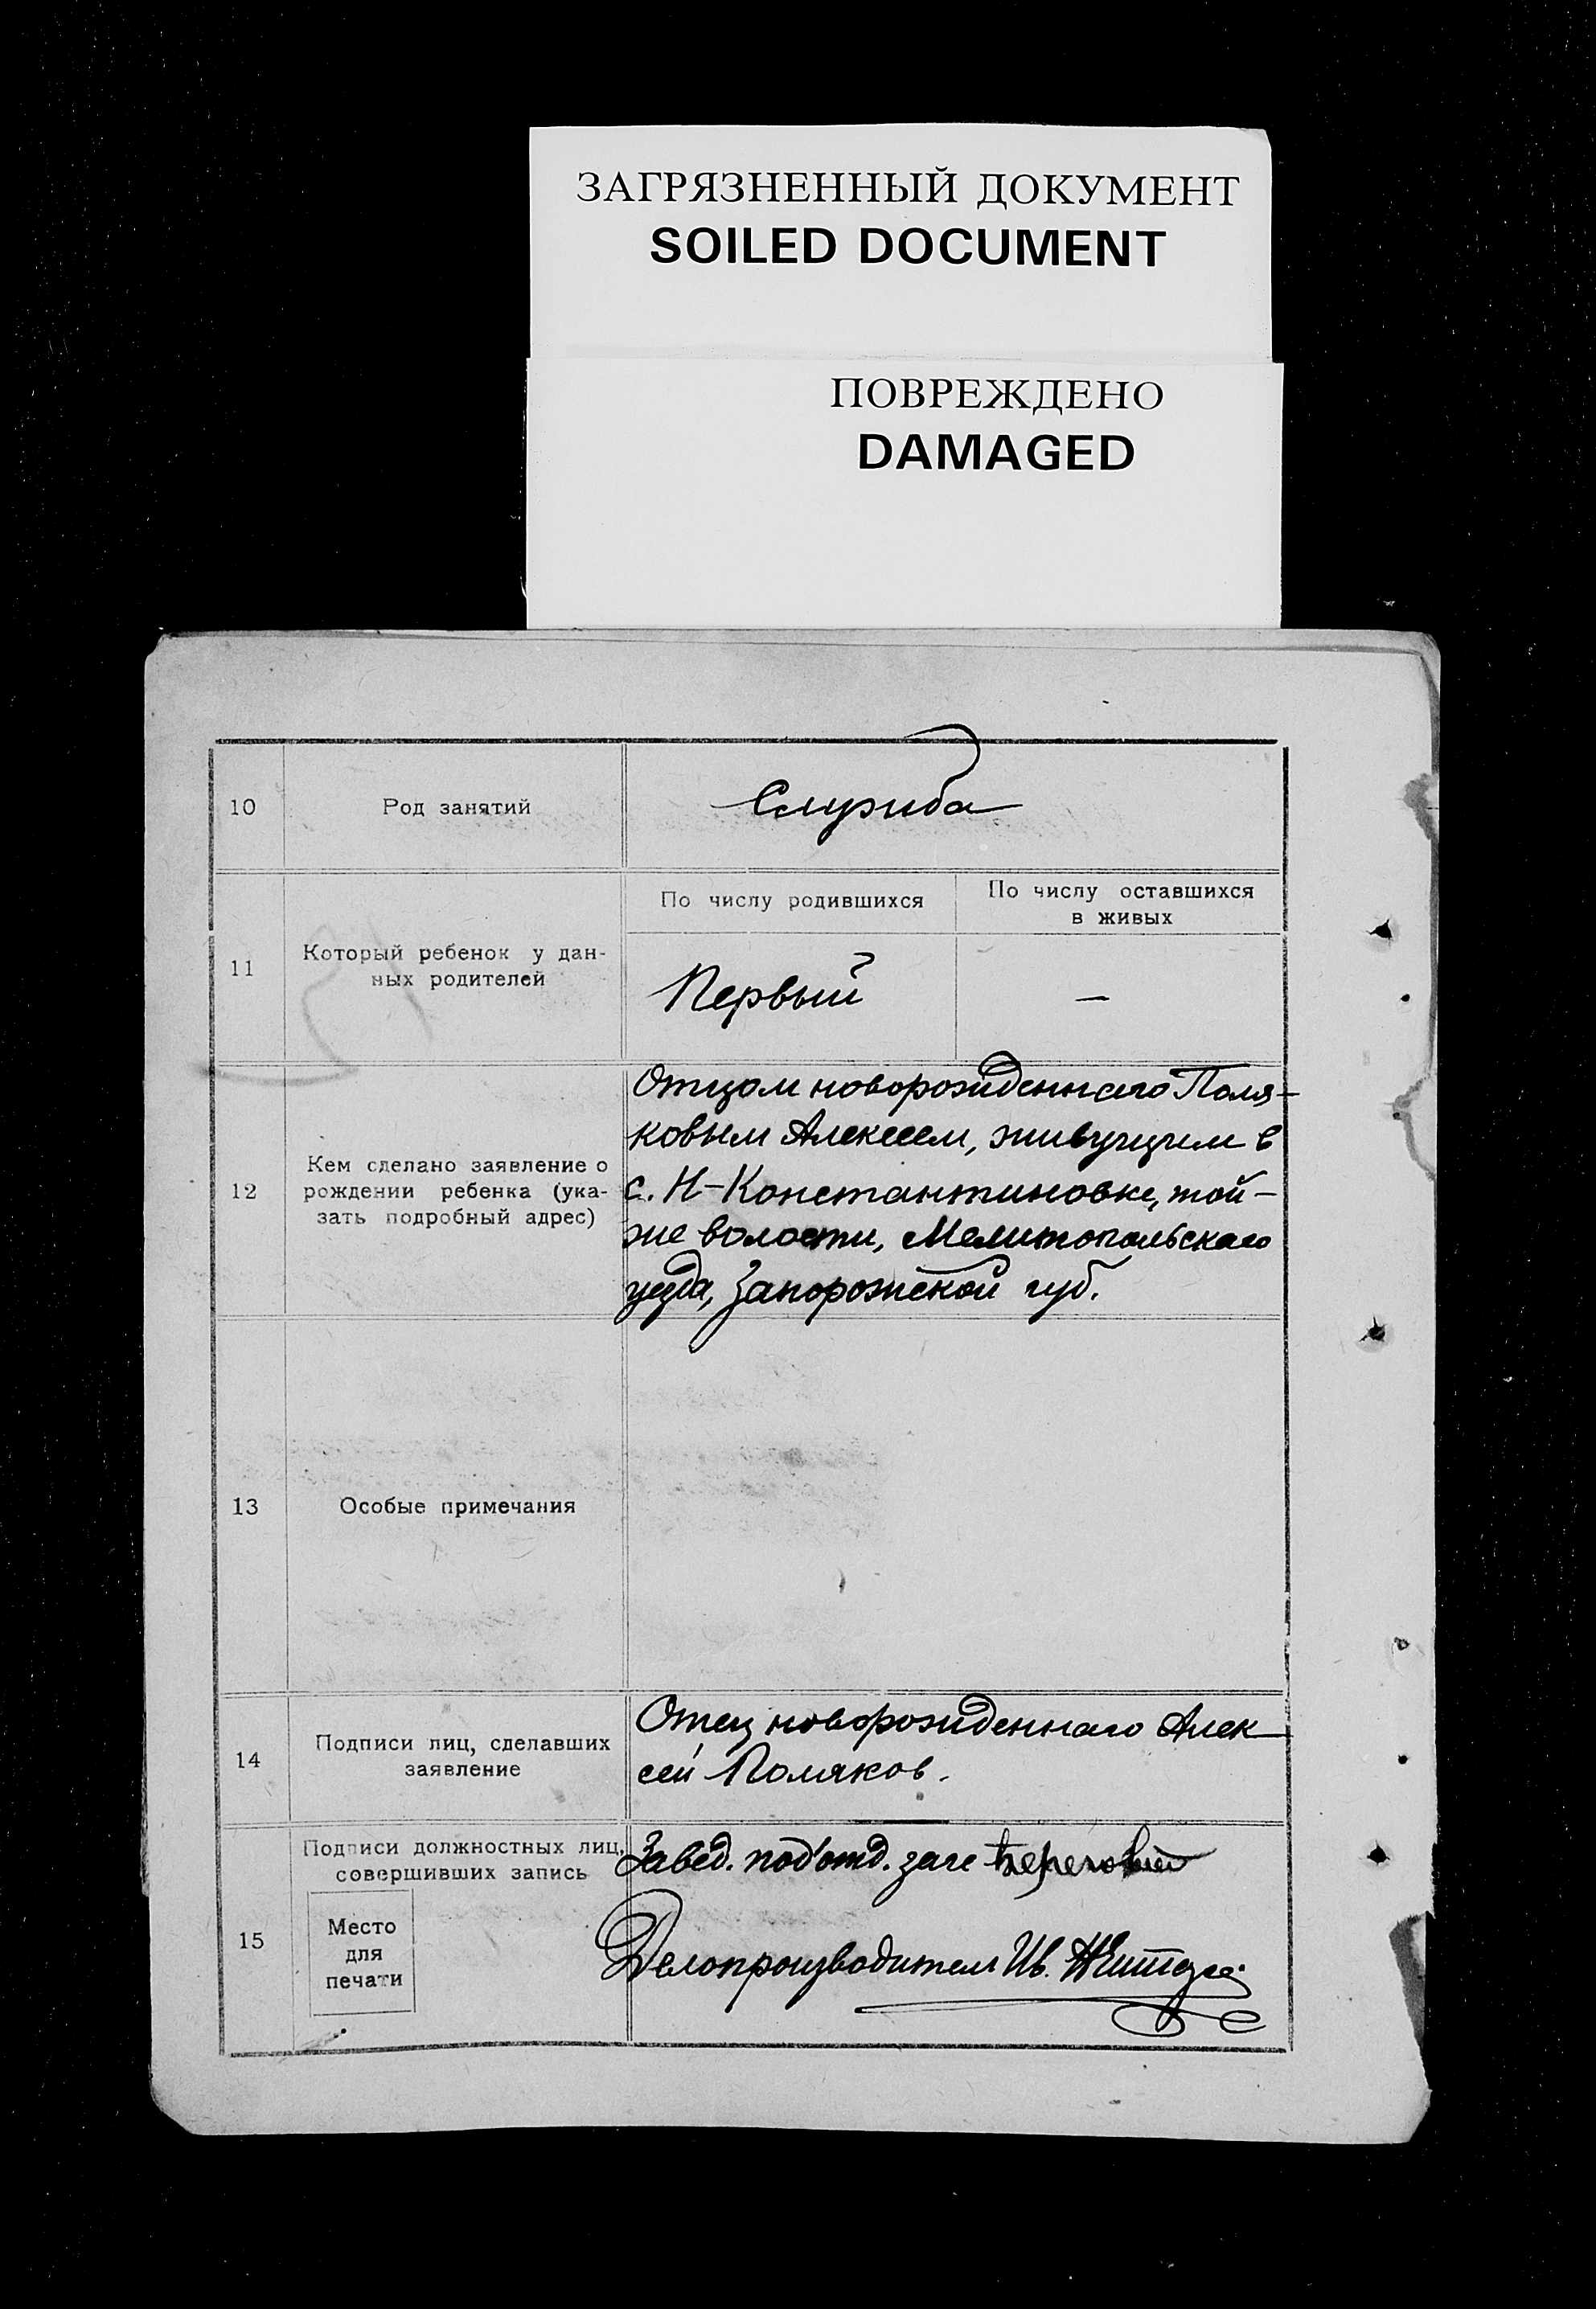 ЗАГРЯЗНЕННЫЙ ДОКУМЕНТ
SOILED DOCUMENT
ПОВРЕЖДЕНО
DAMAGED
10 Род занятий Служба
11 Который ребенок у дан-
ных родителей
По числу родившихся
По числу оставшихся
в живых
Первый —
12 Кем сделано заявление о
рождении ребенка (ука-
зать подробный адрес)
Отцом новорожденнаго Поля-
ковым Алексеем, живущим в
с. Н-Константиновке, той-
же волости, Мелитопольскаго
уезда, Запорожской губ.
13 Особые примечания
14 Подписи лиц, сделавших
заявление
Отец новорожденнаго Алек
сей Поляков.
15 Подписи должностных лиц,
совершивших запись
Место
для
печати
Завед. под'отд. загс
Делопроизводитель Ив.